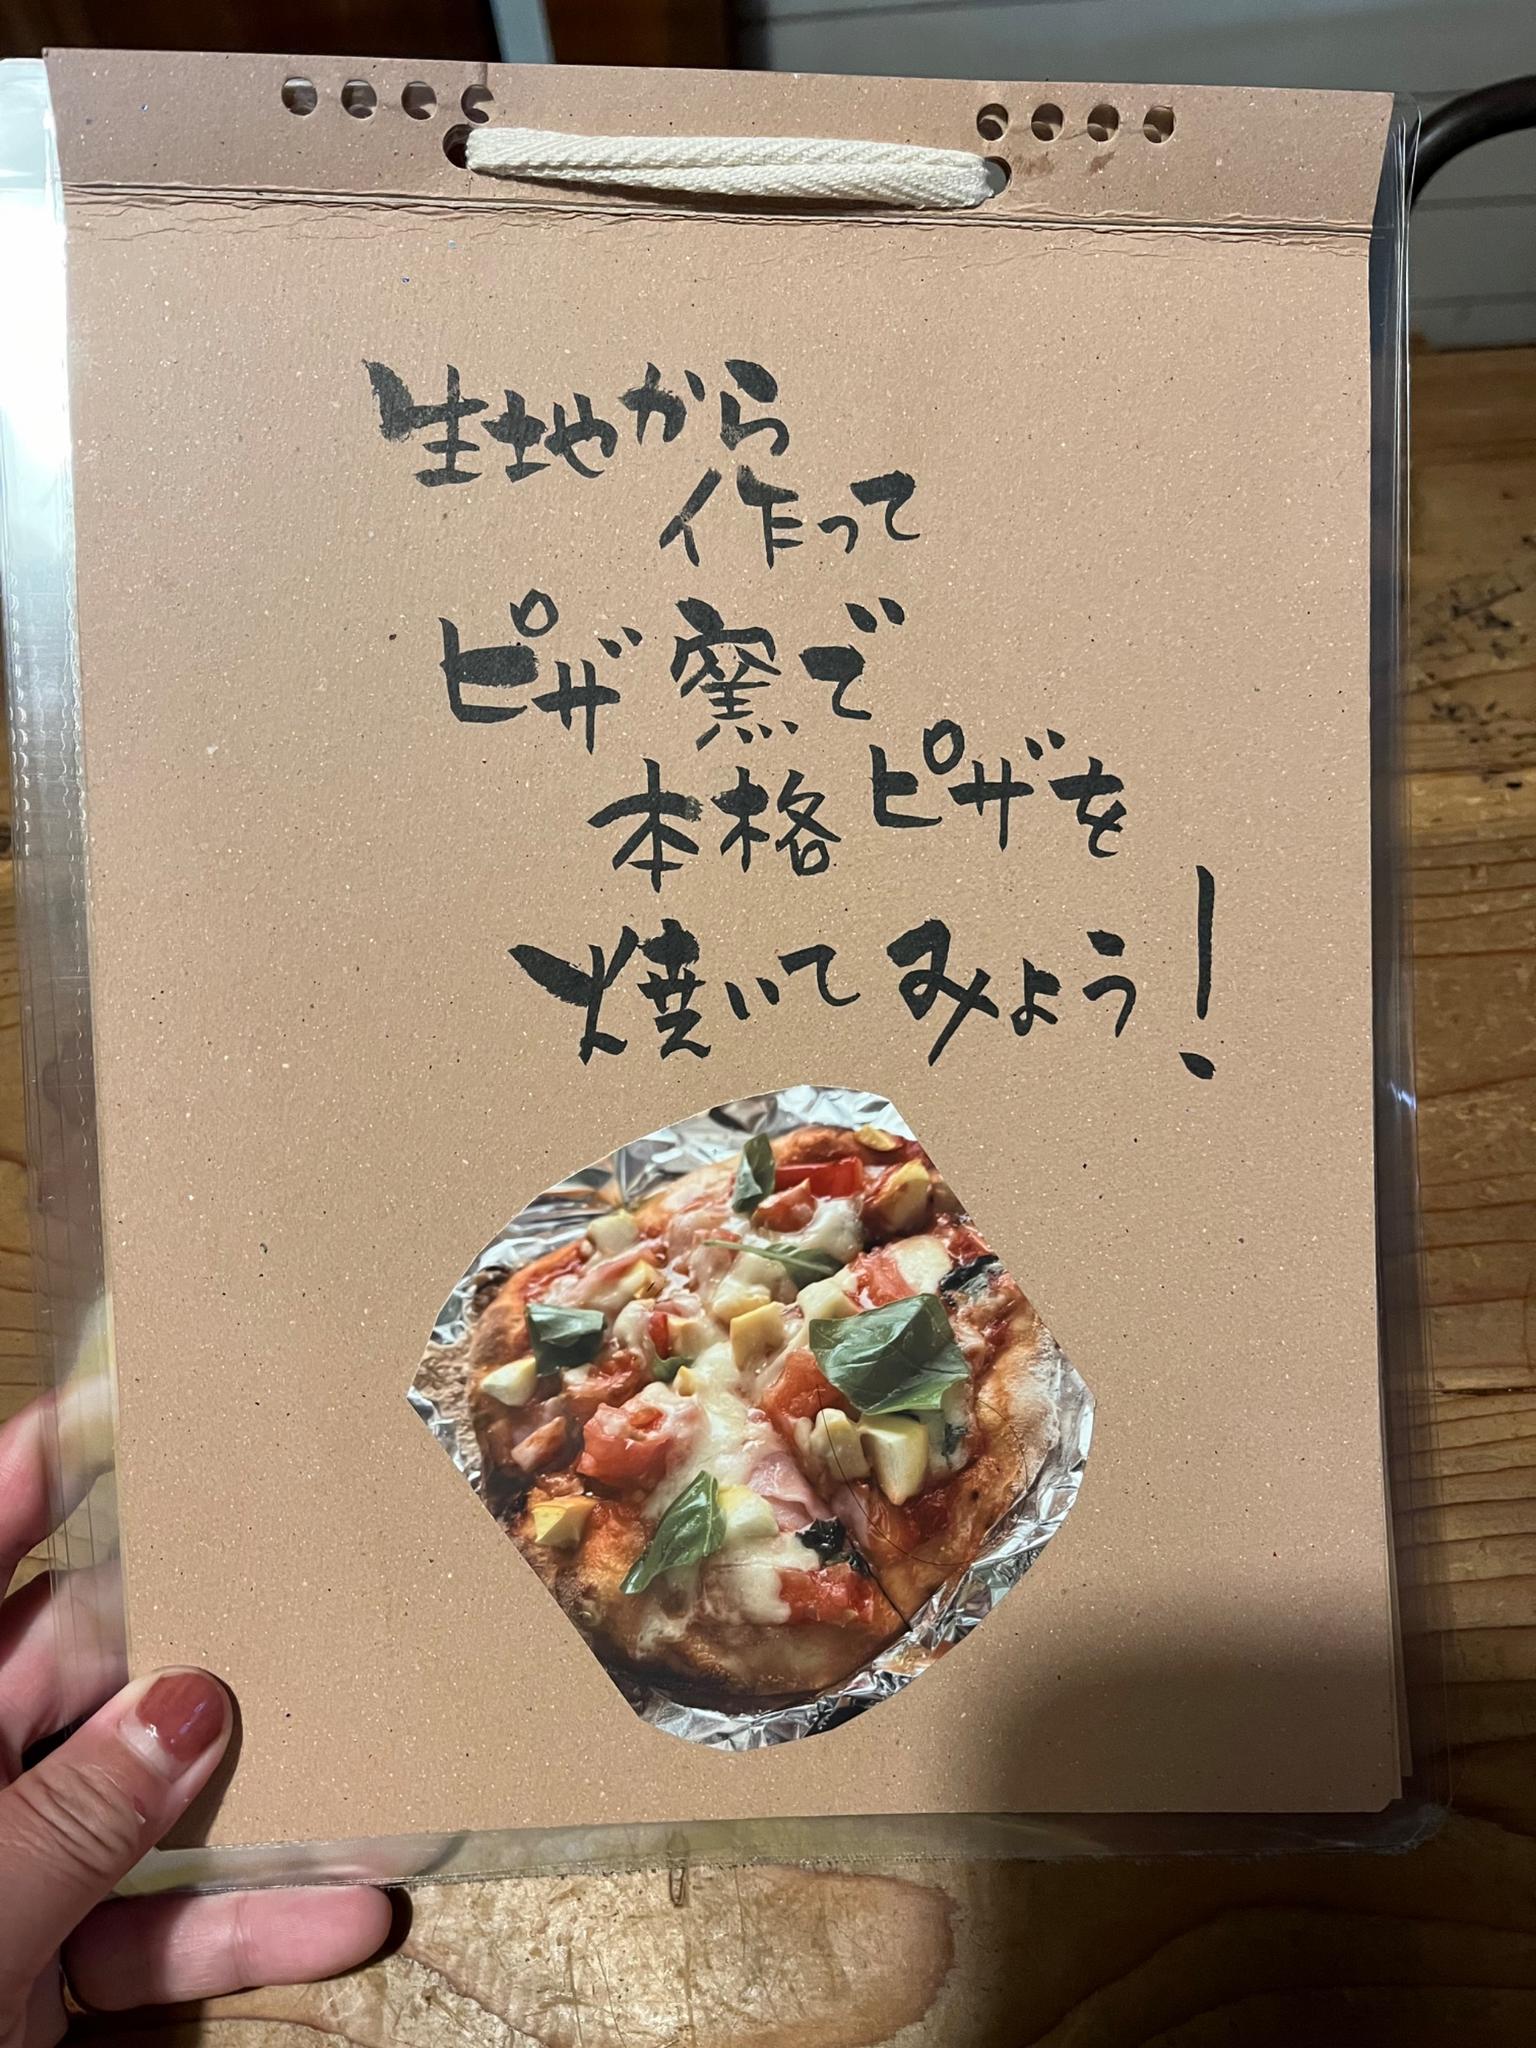 生地から
作って
ピザ窯で
本格ピザを
焼いてみよう!